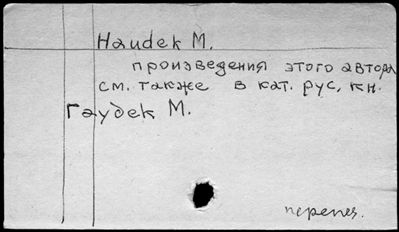 Haudek M.
произведения этого автора
см. также в кат. рус. кн.
Гаудек М.